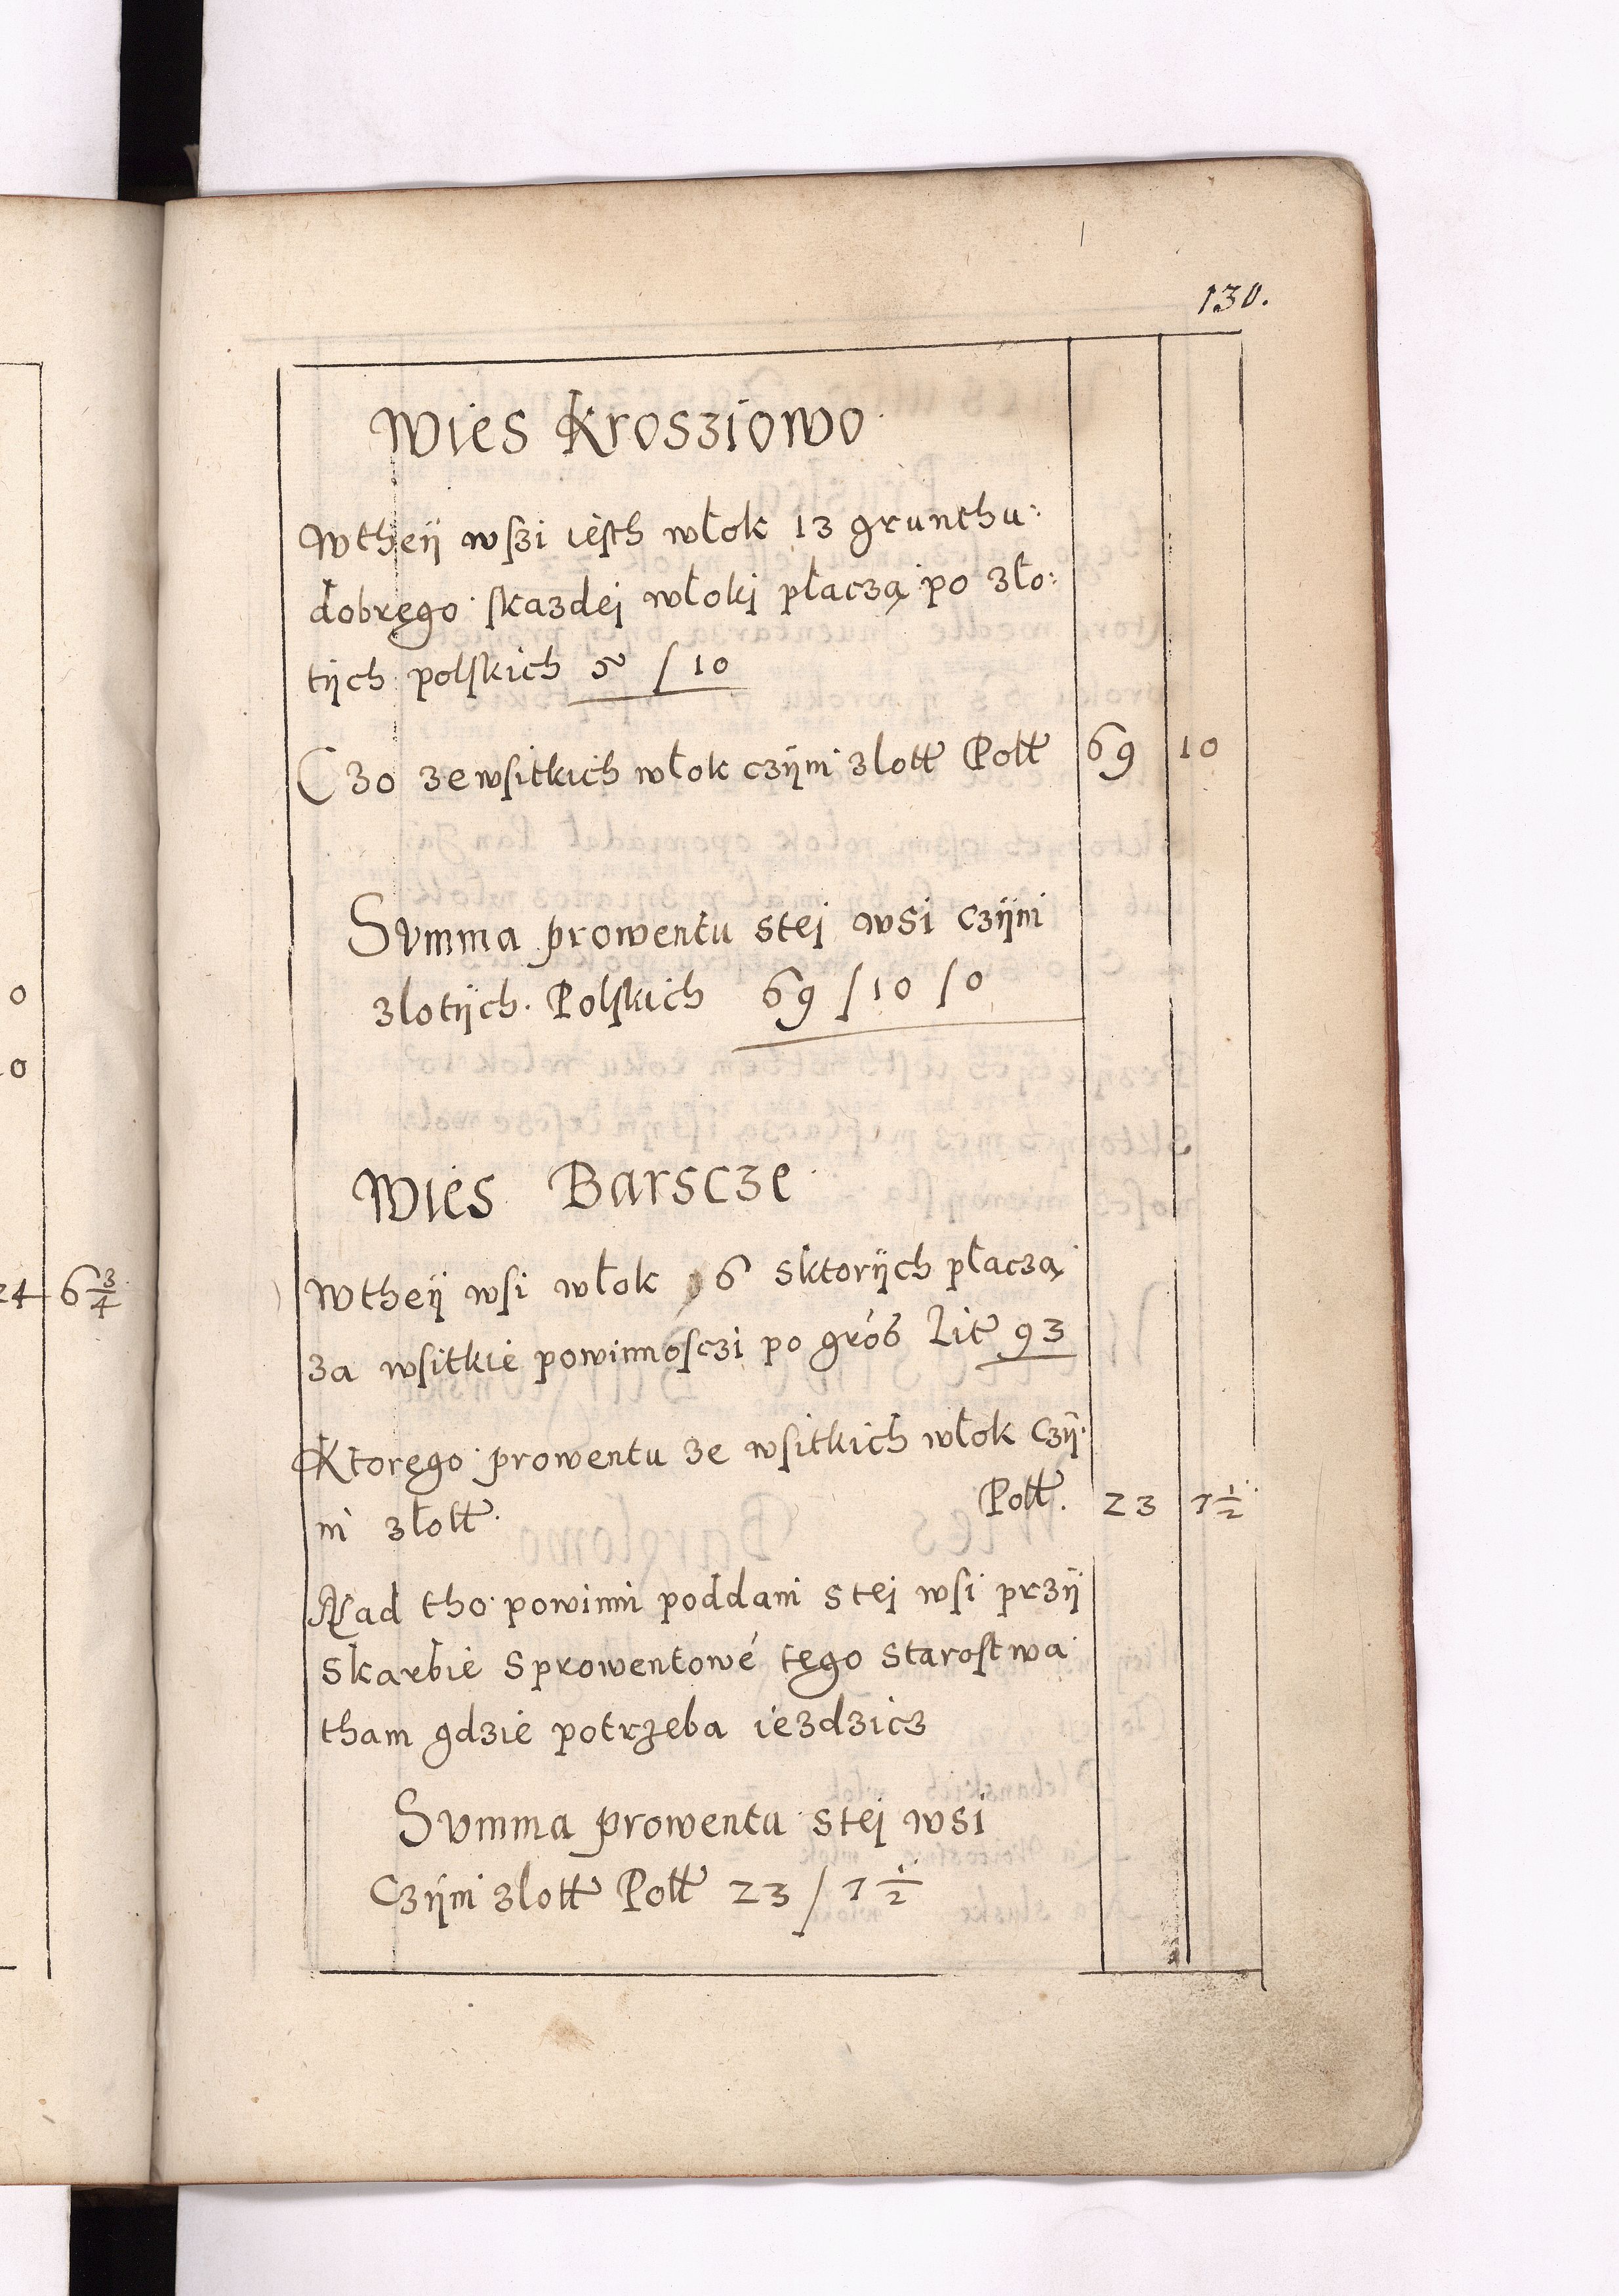 130.
Wies Krosziowo
Wtheÿ wszi iesth włok 13 grunthu:
dobrego skazdej włokj płaczą po zło:
tÿch polskich 5 / 10
Czo ze wsitkich włok czÿni zlott Poll 69 10
Summa prowentu stej wsi czÿni
zlotÿch Polskich 69 / 10 / 0
Wies Barscze
Wtheÿ wsi włok 6 sktorÿch płaczą
za wsitkie powinnosczi po gros Lit 93
Ktorego prowentu ze wsitkich włok Czÿ
ni złott Poll. 23 7 1/2
Nad tho powinni poddani stej wsi przÿ
skarbie sprowentowé tego starostwa
tham gdzie potrzeba iezdzicz
Summa prowentu stej wsi
Czÿni zlott Poll 23 / 7 1/2
0
0
24 6 3/4